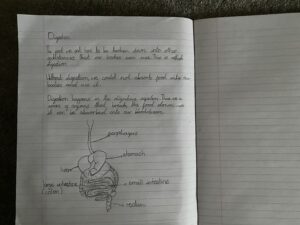 Digestion
The food we eat has to be broken down into other
substances that our bodies can use. This is called
digestion.
Without digestion we could not absorb food into our
bodies and use it.
Digestion happens in the digestive system. This is a
series of organs that break the food down so
it can be absorbed into our bloodstream.
oesophagus
stomach
liver
large intestine
(colon)
small intestine
rectum